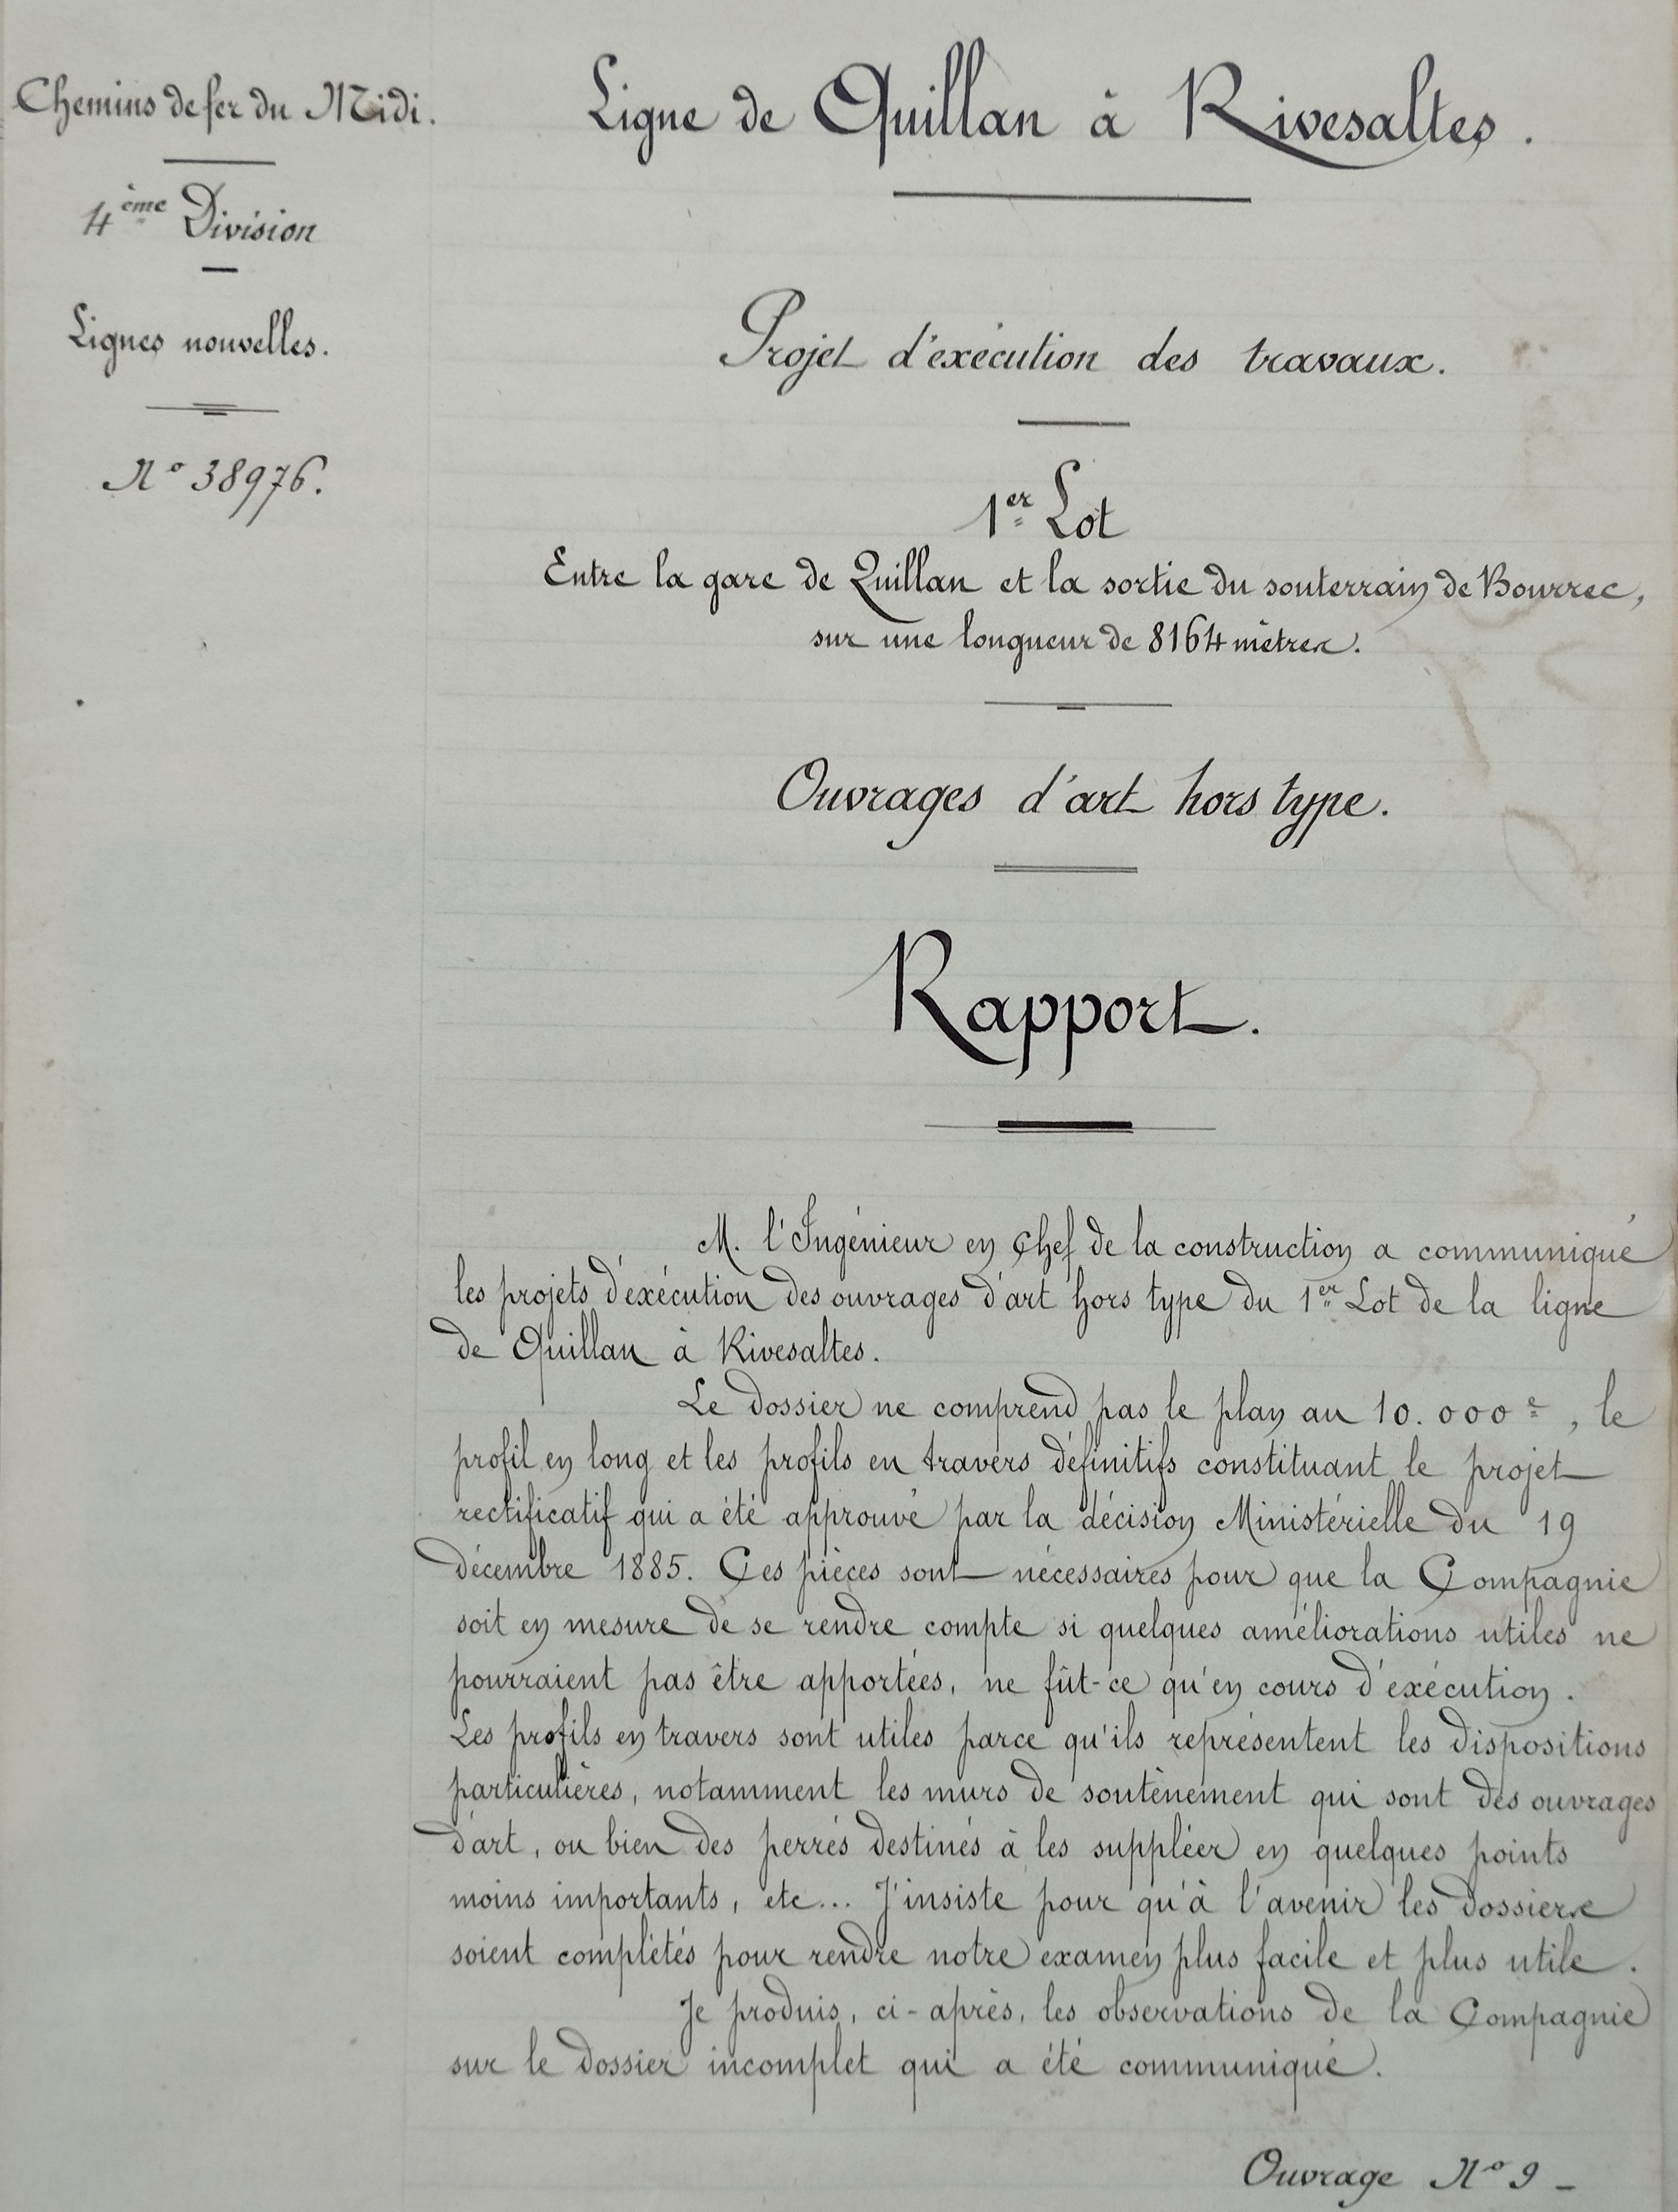 Chemins de fer du Midi.
4ème Division
Lignes nouvelles.
N° 38976.
Ligne de Quillan à Rivesaltes.
Projet d'exécution des travaux.
1er Lot
Entre la gare de Quillan et la sortie du souterrain de Bourrec,
sur une longueur de 8164 mètres.
Ouvrages d'art hors type.
Rapport.
M. l'Ingénieur en Chef de la construction a communiqué
les projets d'exécution des ouvrages d'art hors type du 1er Lot de la ligne
de Quillan à Rivesaltes.
Le dossier ne comprend pas le plan au 10.000e, le
profil en long et les profils en travers définitifs constituant le projet
rectificatif qui a été approuvé par la décision Ministérielle du 19
décembre 1885. Ces pièces sont nécessaires pour que la Compagnie
soit en mesure de se rendre compte si quelques améliorations utiles ne
pourraient pas être apportées, ne fût-ce qu'en cours d'exécution.
Les profils en travers sont utiles parce qu'ils représentent les dispositions
particulières, notamment les murs de soutènement qui sont des ouvrages
d'art, ou bien des perrés destinés à les suppléer en quelques points
moins importants, etc... J'insiste pour qu'à l'avenir les dossiers
soient complétés pour rendre notre examen plus facile et plus utile.
Je produis, ci-après, les observations de la Compagnie
sur le dossier incomplet qui a été communiqué.
Ouvrage N° 9 -